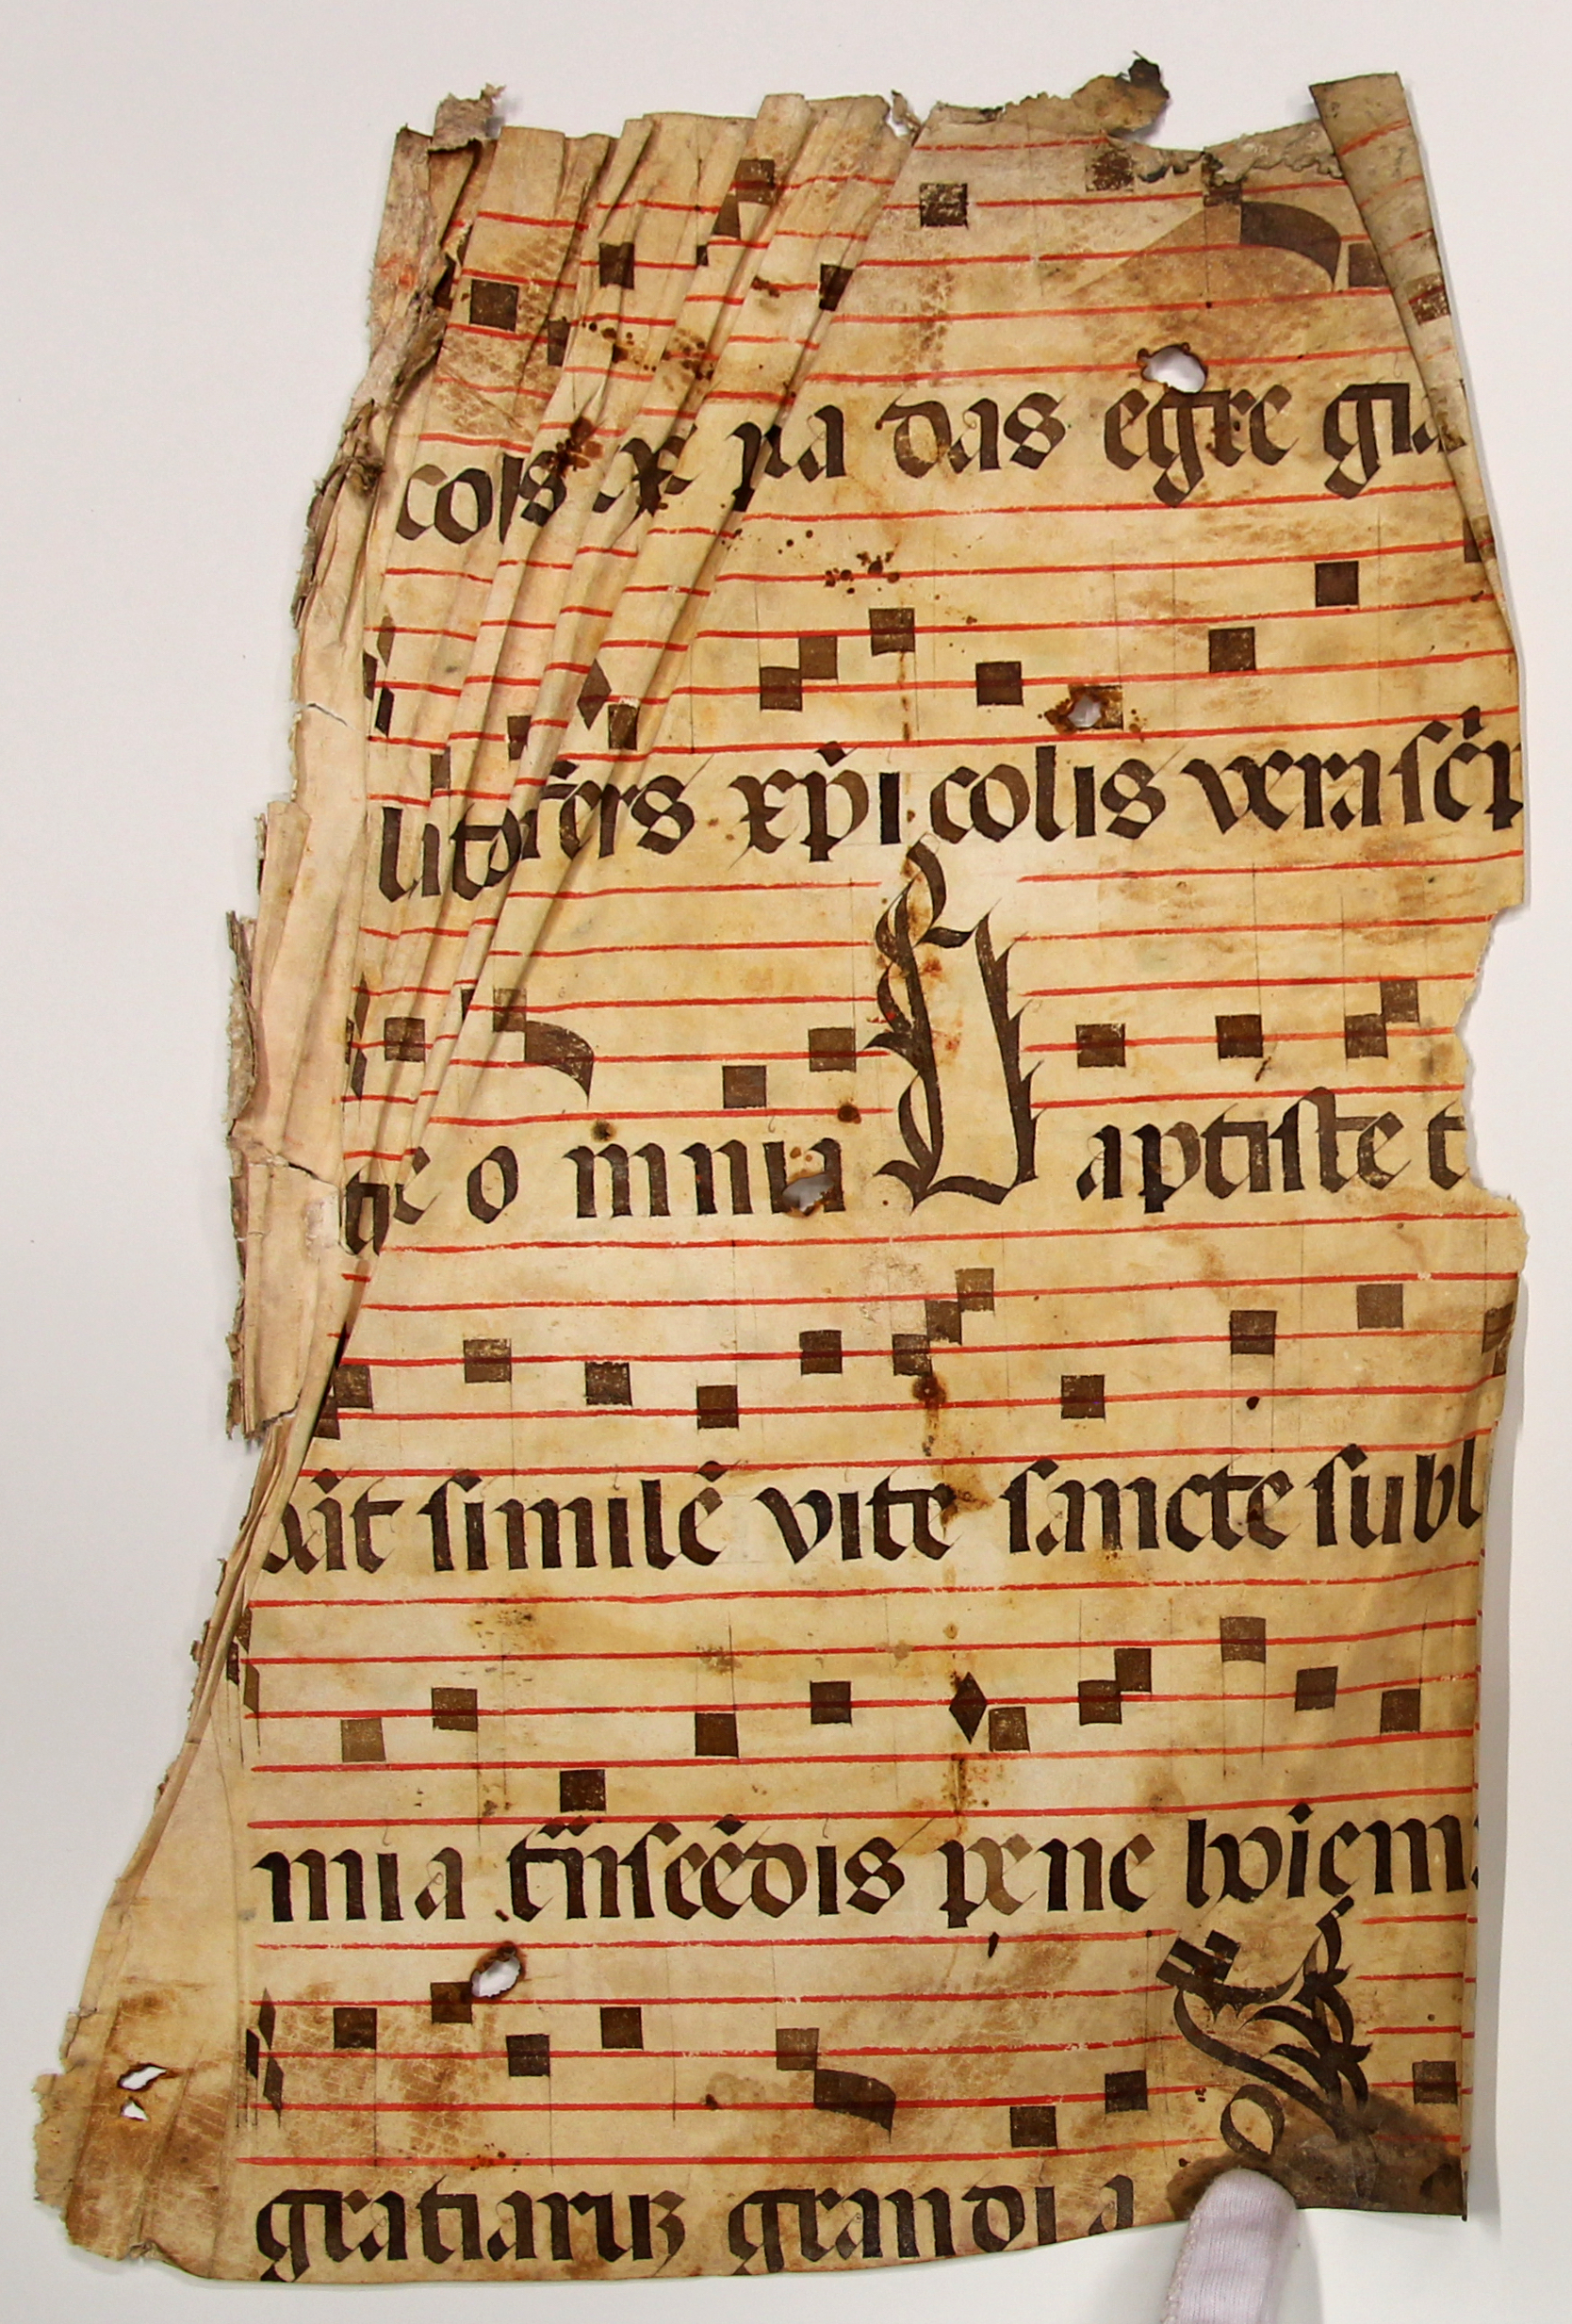 das egre gia
fers xp̄i colis vera sc̄i
o mniu B aptiste t
similē vite sancte subl
mi a trn̄scēdis pene hoiem
gratiaruz grandi a